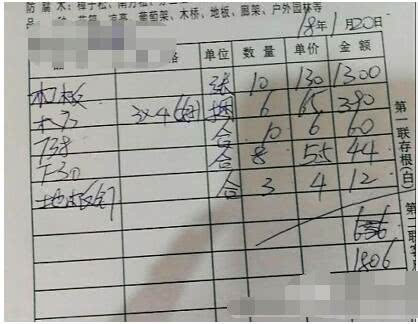 防腐木:樟子松、南方松、
花架、凉亭、葡萄架、木桥、地板、廊架、户外园林等
18年1月20日
单位 数量 单价 金额
板 张 10 130 1300
木方 3×4 捆 6 65 390
T38 合 10 6 60
F30 合 8 5.5 44
地板钉 合 3 4 12
1806
第一联存根(白)
第二联客户